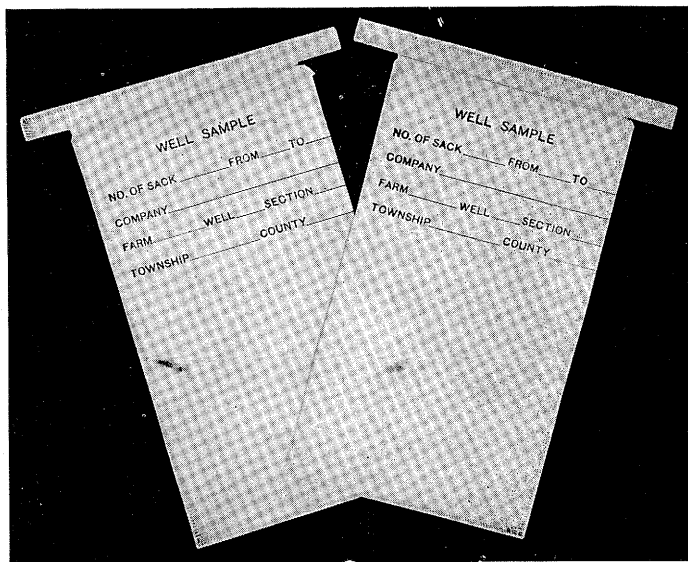 WELL SAMPLE
NO. OF SACK FROM TO
COMPANY
FARM WELL SECTION
TOWNSHIP COUNTY
WELL SAMPLE
NO. OF SACK FROM TO
COMPANY
FARM WELL SECTION
TOWNSHIP COUNTY